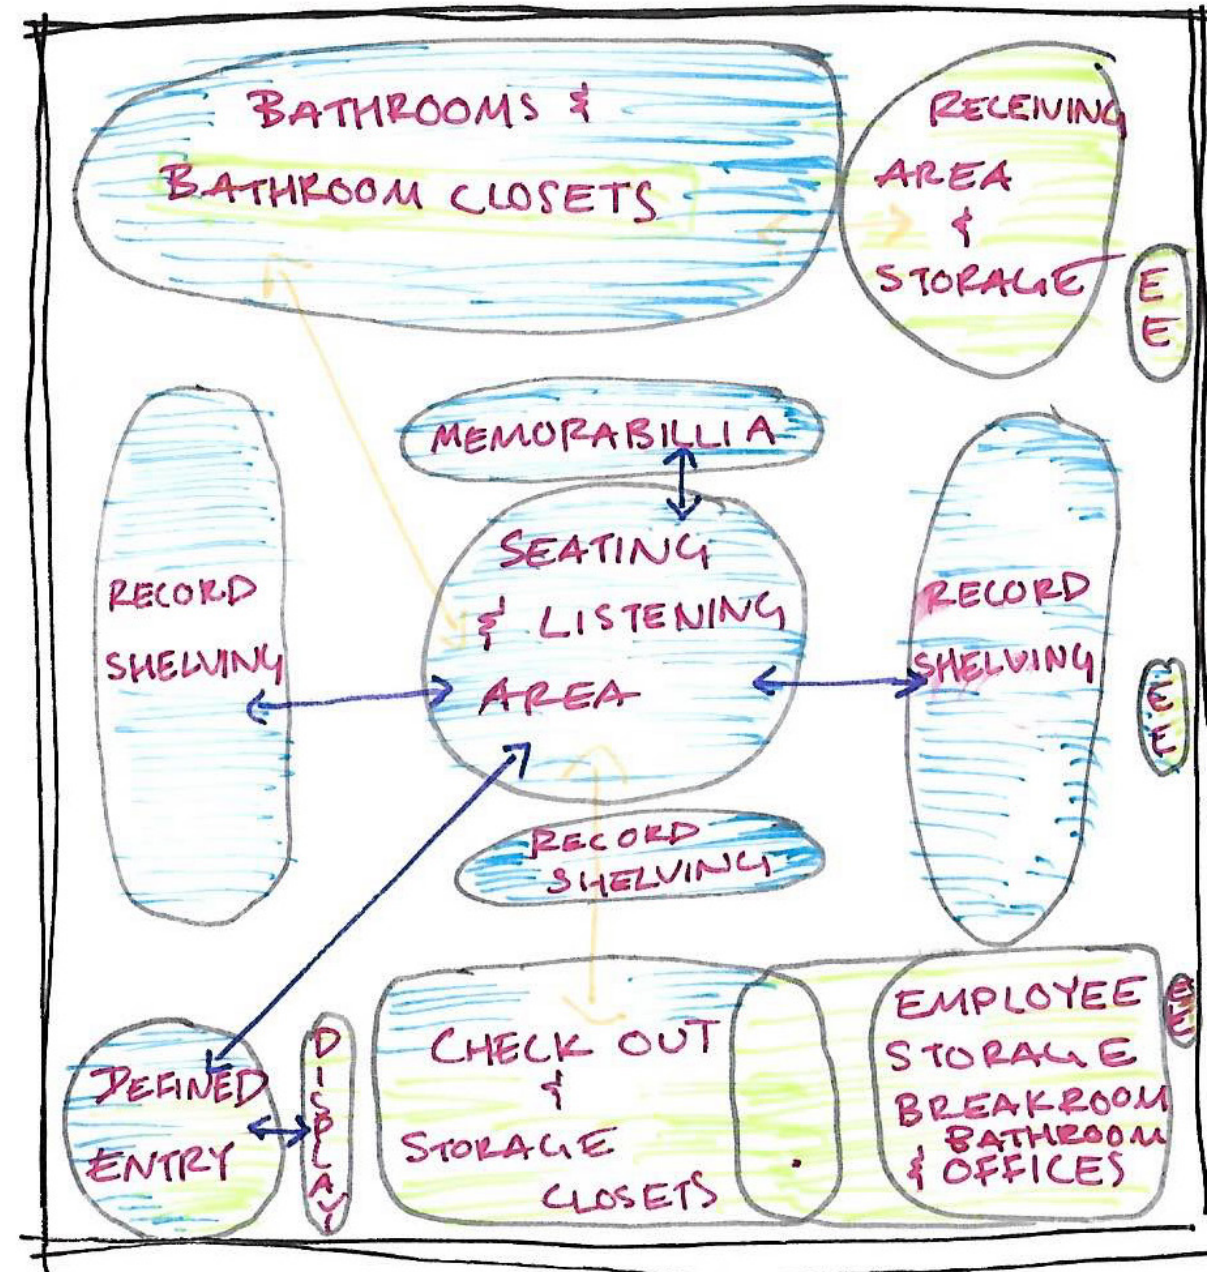 BATHROOMS &
BATHROOM CLOSETS
RECEIVING
AREA
&
STORAGE
E
E
MEMORABILLIA
SEATING
& LISTENING
AREA
RECORD
SHELVING
RECORD
SHELVING
E
E
RECORD
SHELVING
DEFINED
ENTRY
DISPLAY
CHECK OUT
&
STORAGE
CLOSETS
EMPLOYEE
STORAGE
BREAKROOM
BATHROOM
& OFFICES
E
E